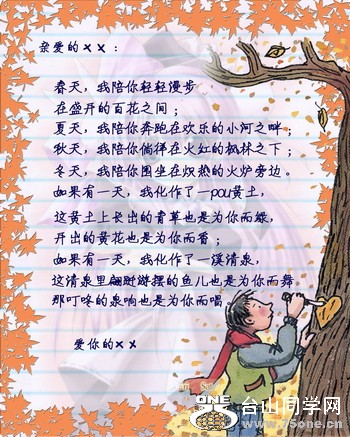 亲爱的××：
春天，我陪你轻轻漫步
在盛开的百花之间；
夏天，我陪你奔跑在欢乐的小河之畔；
秋天，我陪你徜徉在火红的枫林之下；
冬天，我陪你围坐在炽热的火炉旁边。
如果有一天，我化作了一pou黄土，
这黄土上长出的青草也是为你而绿，
开出的黄花也是为你而香；
如果有一天，我化作了一溪清泉，
这清泉里翩跹游摆的鱼儿也是为你而舞
那叮咚的泉响也是为你而唱。
爱你的××
ONE
台山同学网
www.75one.cn